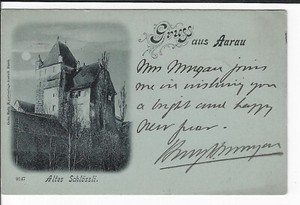 Gruss aus Aarau
Mrs Morgan joins
me in wishing you
a bright and happy
New Year.
Altes Schlössli.